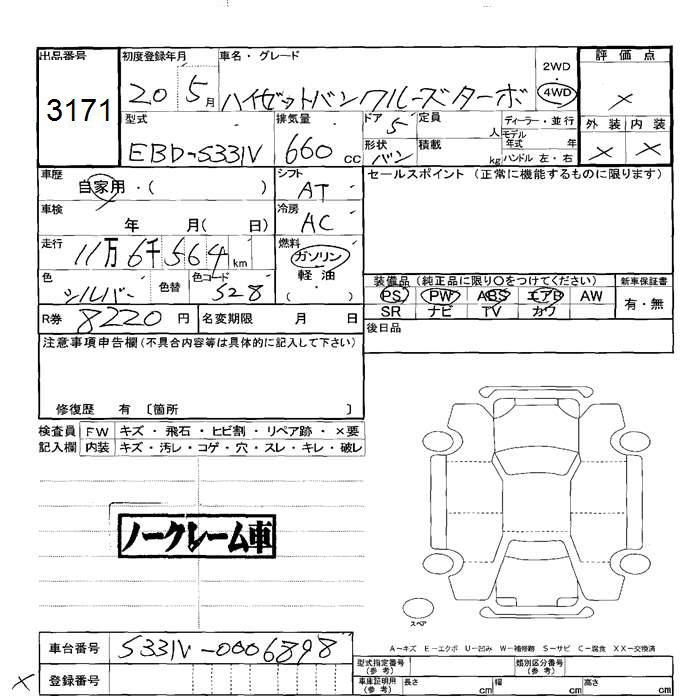 出品番号 初度登録年月 車名・グレード 2WD 評価点
3171 20 5月 ハイゼットバンクルーズターボ ・ 4WD ×
型式 排気量 ドア 5 定員 人 ディーラー・並行 外装 内装
EBD-S331V 660 cc 形状 バン 積載 kg モデル年式 年 × ×
ハンドル 左・右
車歴 自家用・( ) シフト AT セールスポイント(正常に機能するものに限ります)
車検 年 月( 日) 冷房 AC
走行 11万6千564km 燃料 ガソリン
軽油
( )
色 シルバー 色替 色コード S28 装備品(純正品に限り○をつけてください) 新車保証書
PS PW ABS エアB AW 有・無
SR ナビ TV カワ
R券 8220円 名変期限 月 日 後日品
注意事項申告欄(不具合内容等は具体的に記入して下さい)
修復歴 有 〔箇所 〕
検査員 FW キズ・飛石・ヒビ割・リペア跡・×要
記入欄 内装 キズ・汚レ・コゲ・穴・スレ・キレ・破レ
ノークレーム車
スペア
A-キズ E-エクボ U-凹み W-補修跡 S-サビ C-腐食 XX-交換済
車台番号 S331V-0006898
型式指定番号(参考) 類別区分番号(参考)
× 登録番号 車庫証明用(参考) 長さ cm 幅 cm 高さ cm